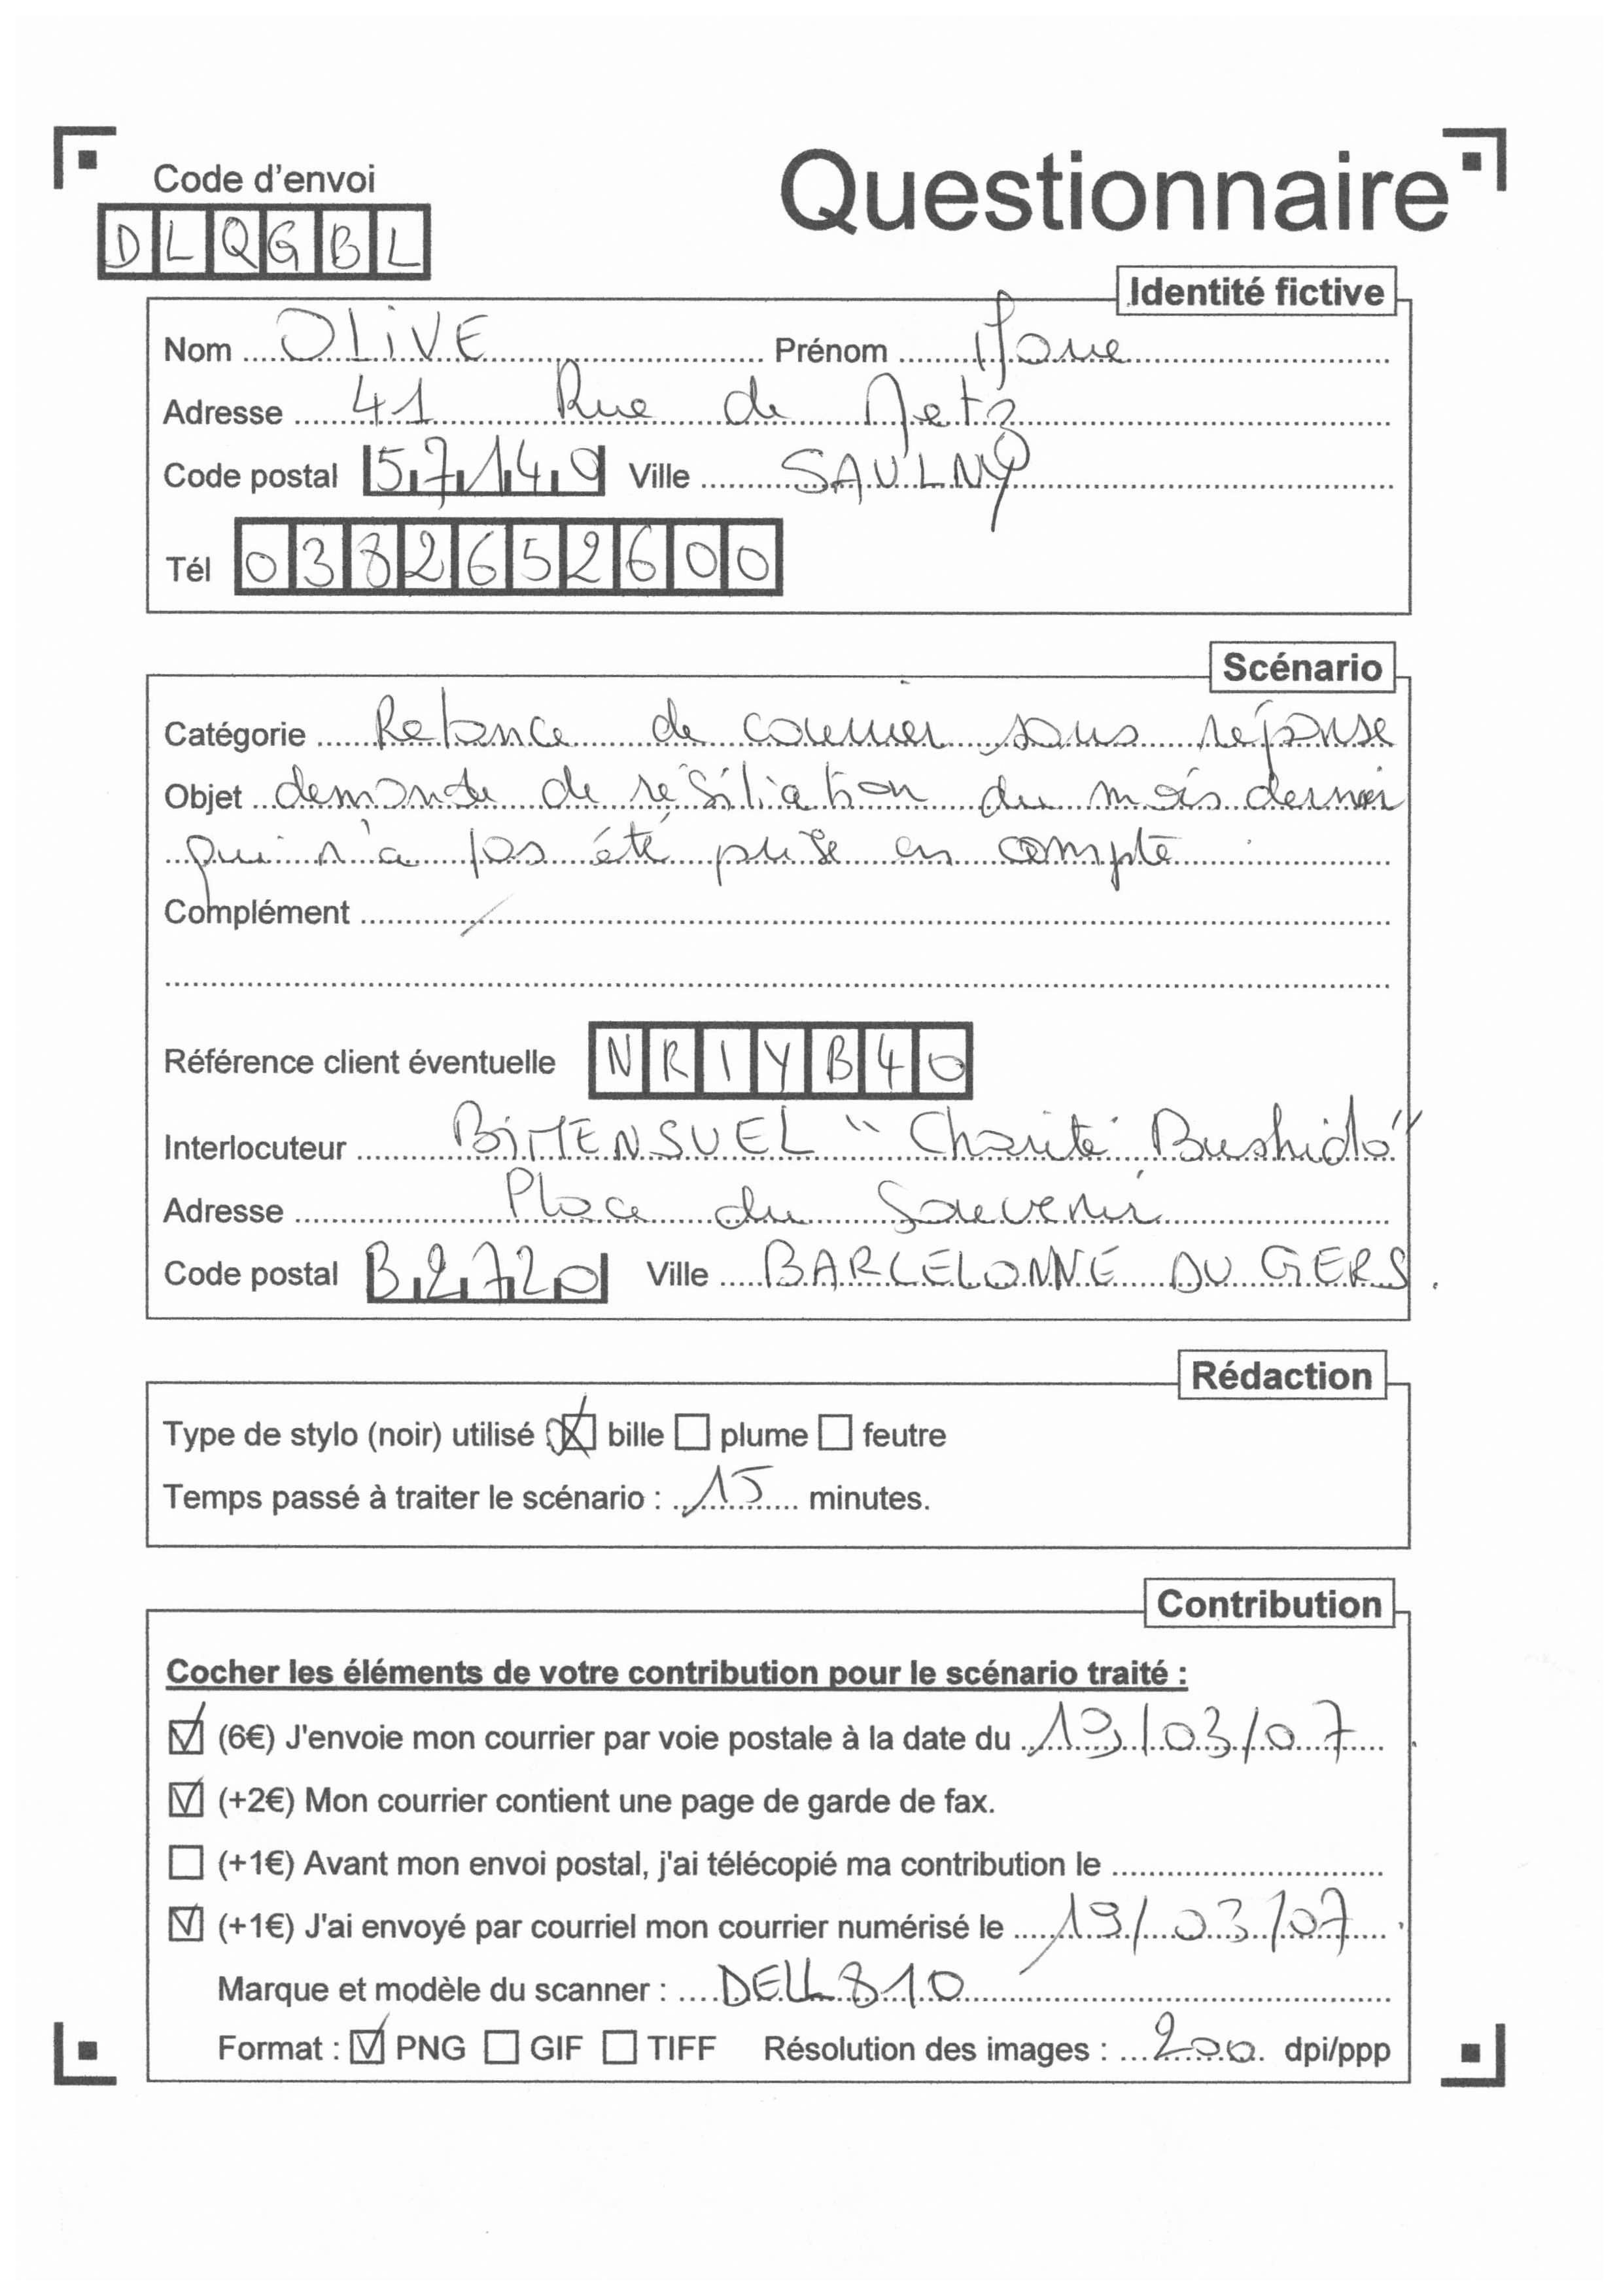 Code d'envoi
Questionnaire
DLQGBL
Identité fictive
Nom OLIVE Prénom
Adresse 41 Rue de Metz
Code postal 57140 Ville SAULNY
Tél 0382652600
Scénario
Catégorie Relance de courrier sans réponse
Objet demande de résiliation du mois dernier
qui n'a pas été prise en compte
Complément /
Référence client éventuelle NRIYB40
Interlocuteur BiMENSUEL "Charité Bushido"
Adresse Place du Souvenir
Code postal B2720 Ville BARCELONNE DU GERS.
Rédaction
Type de stylo (noir) utilisé : ☒ bille ☐ plume ☐ feutre
Temps passé à traiter le scénario : 15 minutes.
Contribution
Cocher les éléments de votre contribution pour le scénario traité :
☑ (6€) J'envoie mon courrier par voie postale à la date du 19/03/07
☑ (+2€) Mon courrier contient une page de garde de fax.
☐ (+1€) Avant mon envoi postal, j'ai télécopié ma contribution le
☑ (+1€) J'ai envoyé par courriel mon courrier numérisé le 19/03/07
Marque et modèle du scanner : DELL 810
Format : ☑ PNG ☐ GIF ☐ TIFF Résolution des images : 200 dpi/ppp